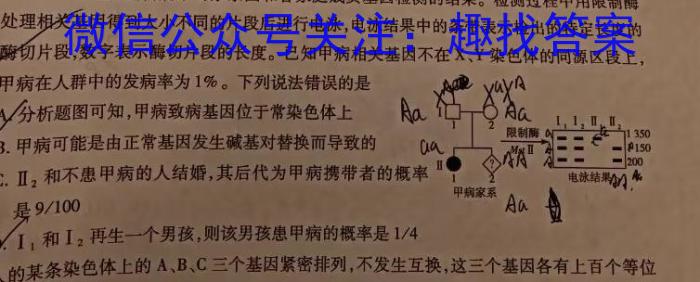 处理相关基因得到大小不同的片段后进行电泳,电泳结果中的条带表示检出的特定长度的
微信公众号关注:趣找答案
酶切片段,数字表示酶切片段的长度。已知甲病相关基因不在X、Y染色体的同源区段上,
甲病在人群中的发病率为1%。下列说法错误的是
A.分析题图可知,甲病致病基因位于常染色体上
B.甲病可能是由正常基因发生碱基对替换而导致的
C.Ⅱ2和不患甲病的人结婚,其后代为甲病携带者的概率
是9/100
Ⅰ1和Ⅰ2再生一个男孩,则该男孩患甲病的概率是1/4
的某条染色体上的A、B、C三个基因紧密排列,不发生互换,这三个基因各有上百个等位
Aa
Aa
aa
AA
Aa
1
2
Ⅱ
1
?
2
甲病家系
限制酶
MstⅡ
Ⅰ1 Ⅰ2 Ⅱ1 Ⅱ2
1 350
1 150
200
电泳结果